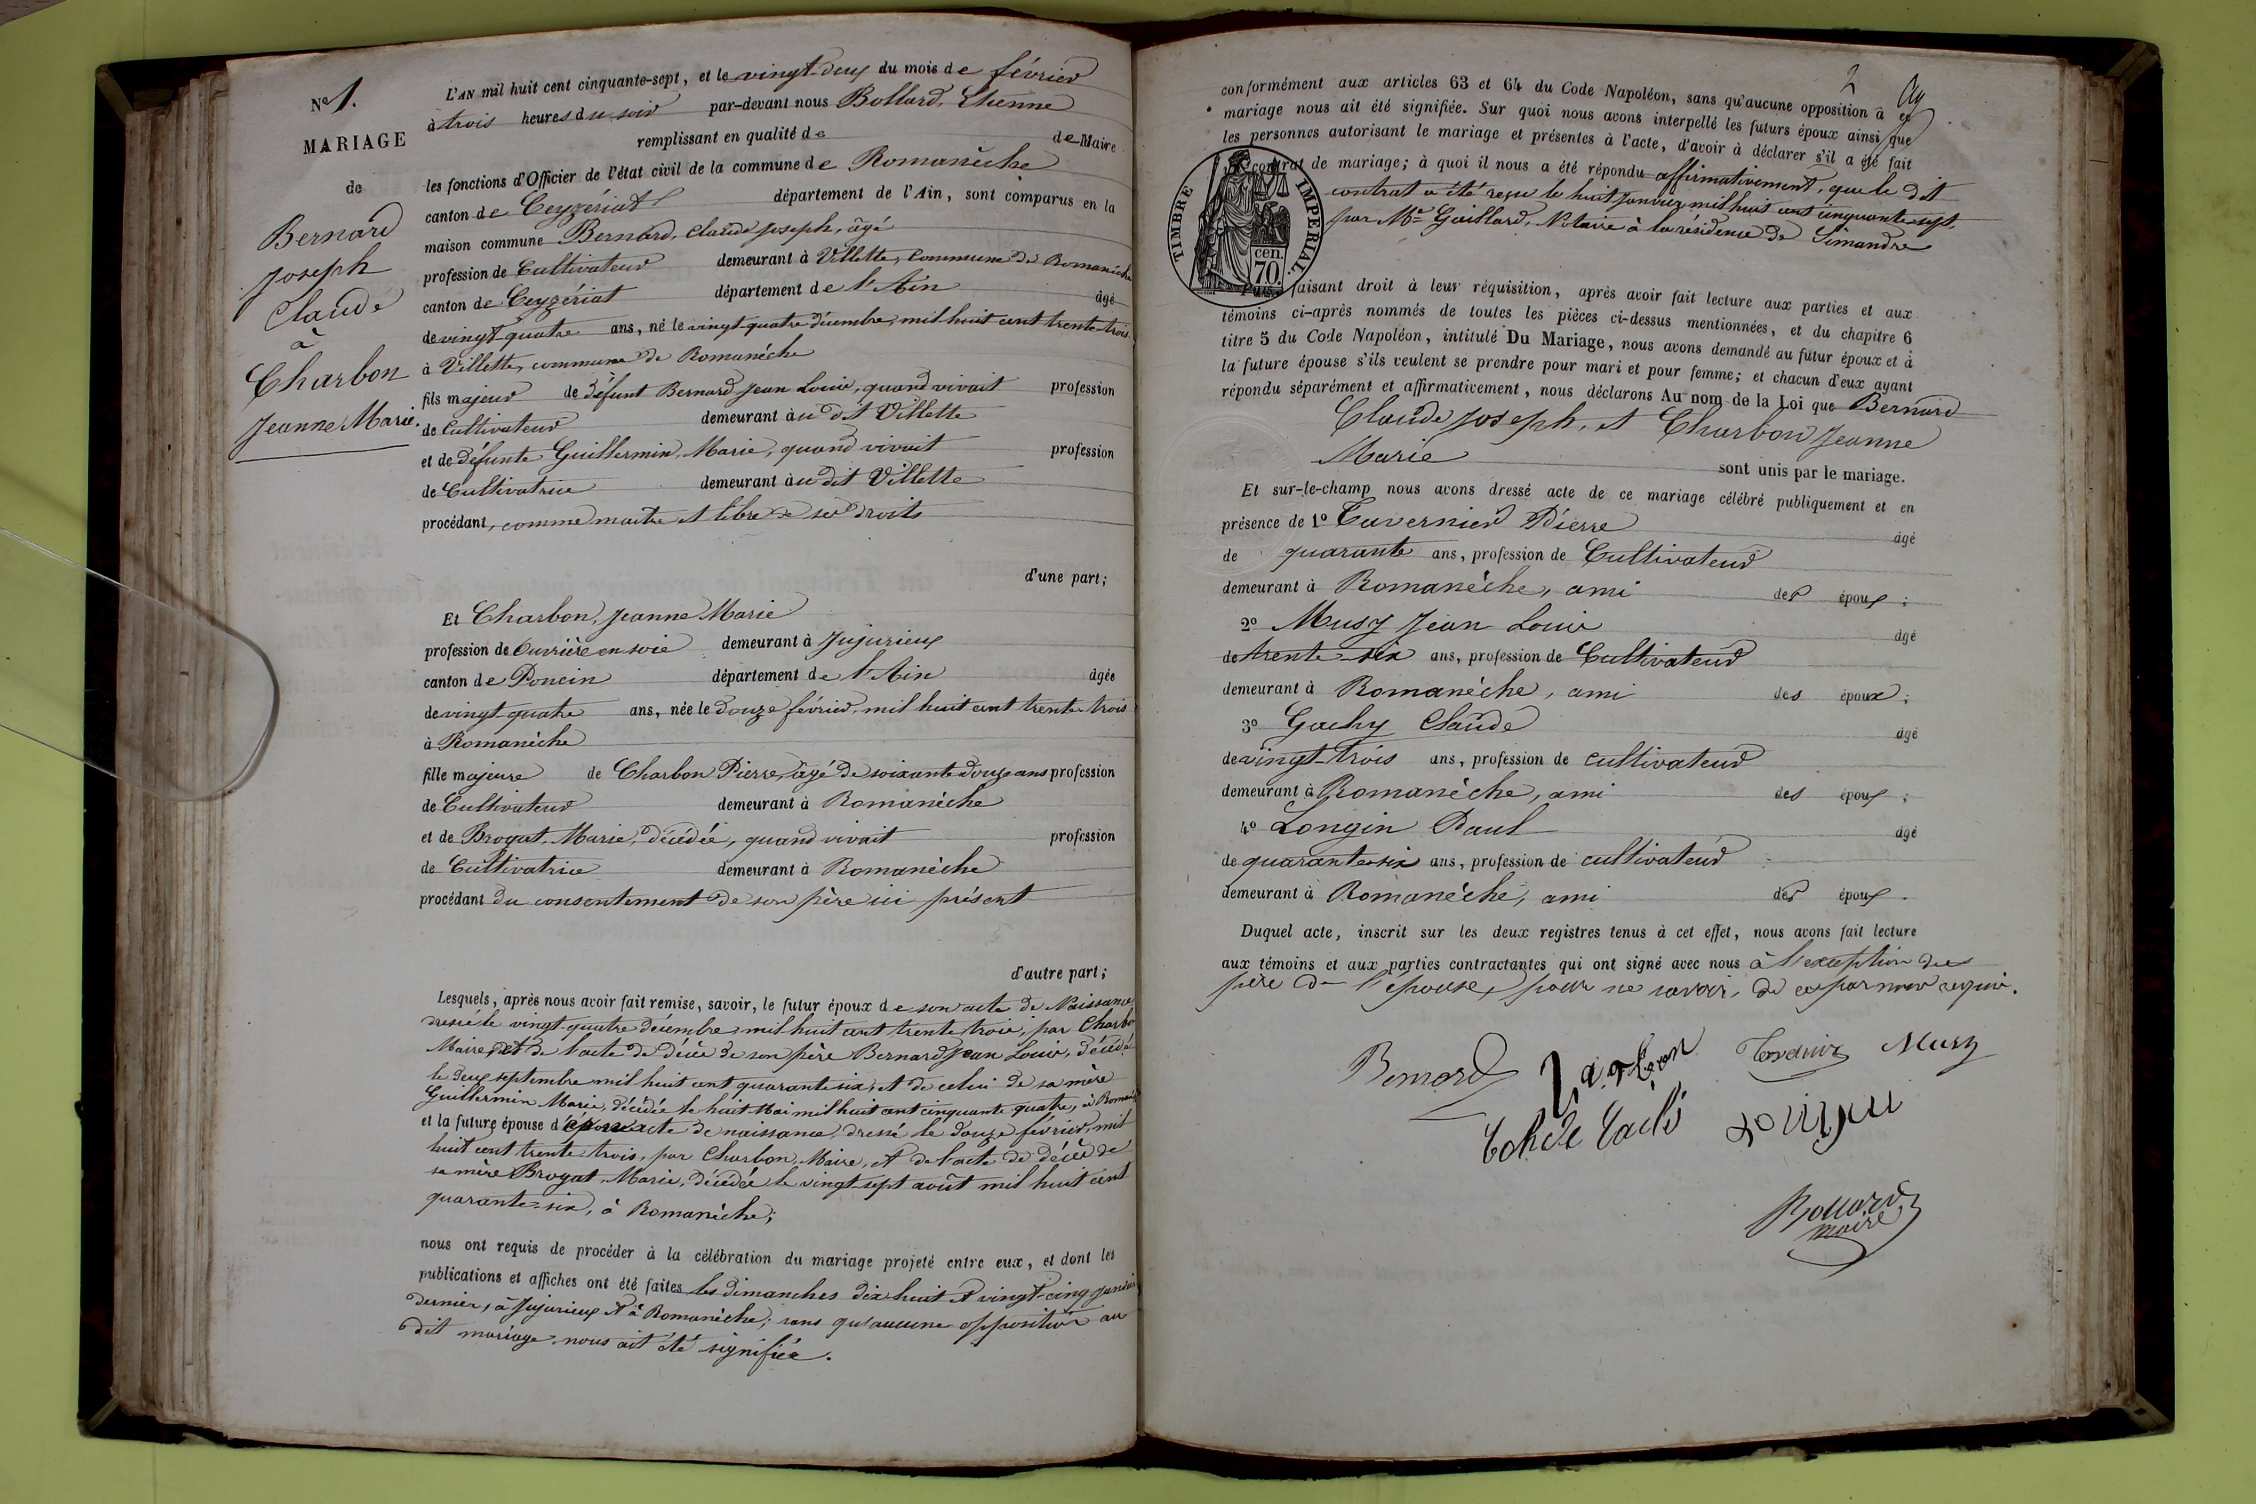 No 1.
MARIAGE
de
Bernard
Joseph
Claude
à
Charbon
Jeanne Marie.
L'AN mil huit cent cinquante-sept, et le vingt-deux du mois de février
à trois heures du soir par-devant nous Bollard, Etienne
remplissant en qualité de de Maire
les fonctions d'Officier de l'état civil de la commune de Romanèche
canton de Ceyzériat département de l'Ain, sont comparus en la
maison commune Bernard, Claude Joseph, âgé
profession de Cultivateur demeurant à Villette, commune de Romanèche
canton de Ceyzériat département de l'Ain âgé
de vingt quatre ans, né le vingt quatre décembre, mil huit cent trente-trois
à Villette, commune de Romanéche
fils majeur de défunt Bernard Jean Louis, quand vivait profession
de Cultivateur demeurant au dit Villette
et de défunte Guillermin, Marie, quand vivait profession
de Cultivatrice demeurant au dit Villette
procédant, comme maitre et libre de ses droits
d'une part;
Et Charbon, Jeanne Marie
profession de Ouvrière en soie demeurant à Jujurieux
canton de Poncin département de l'Ain âgée
de vingt-quatre ans, née le douze février, mil huit cent trente-trois
à Romanèche
fille majeure de Charbon Pierre, âgé de soixante douze ans profession
de Cultivateur demeurant à Romanéche
et de Brogat, Marie, décédée, quand vivait profession
de Cultivatrice demeurant à Romanèche
procédant du consentement de son père ici présent
d'autre part;
Lesquels, après nous avoir fait remise, savoir, le futur époux de son acte de Naissance
dressé le vingt-quatre décembre mil huit cent trente trois, par Charbon
Maire, et de l'acte de décès de son père Bernard Jean Louis, décédé
le deux septembre mil huit cent quarante six, et de celui de sa mère
Guillermin Marie, décédée le huit Mai mil huit cent cinquante quatre, à Romanè
et la future épouse d acte de naissance, dressé le douze février, mil
huit cent trente trois, par Charbon, Maire, et de l'acte de décès de
sa mère Brogat, Marie, décédée le vingt-sept août mil huit cent
quarante-six, à Romanèche;
nous ont requis de procéder à la célébration du mariage projeté entre eux, et dont les
publications et affiches ont été faites les dimanches dix huit et vingt-cinq janvier
dernier, à Jujurieux et à Romanéche; sans qu'aucune opposition au
dit mariage nous ait été signifiée.
2
conformément aux articles 63 et 64 du Code Napoléon, sans qu'aucune opposition à ce
mariage nous ait été signifiée. Sur quoi nous avons interpellé les futurs époux ainsi que
les personnes autorisant le mariage et présentes à l'acte, d'avoir à déclarer s'il a été fait
contrat de mariage; à quoi il nous a été répondu affirmativement, que le dit
contrat a été reçu le huit janvier mil huit cent cinquante-sept,
par Me Gaillard, Notaire à la résidence de Simandre
TIMBRE IMPERIAL.
cen.
70.
Puis, faisant droit à leur réquisition, après avoir fait lecture aux parties et aux
témoins ci-après nommés de toutes les pièces ci-dessus mentionnées, et du chapitre 6
titre 5 du Code Napoléon, intitulé Du Mariage, nous avons demandé au futur époux et à
la future épouse s'ils veulent se prendre pour mari et pour femme; et chacun d'eux ayant
répondu séparément et affirmativement, nous déclarons Au nom de la Loi que Bernard
Claude Joseph, et Charbon Jeanne
Marie sont unis par le mariage.
Et sur-le-champ nous avons dressé acte de ce mariage célébré publiquement et en
présence de 1o Tavernier Pierre âgé
de quarante ans, profession de Cultivateur
demeurant à Romanéche, ami des époux;
2o Musy Jean Louis âgé
de trente-six ans, profession de Cultivateur
demeurant à Romanéche, ami des époux;
3o Gachy Claude âgé
de vingt-trois ans, profession de cultivateur
demeurant à Romanéche, ami des époux;
4o Longin Paul âgé
de quarante-six ans, profession de cultivateur
demeurant à Romanéche, ami des époux.
Duquel acte, inscrit sur les deux registres tenus à cet effet, nous avons fait lecture
aux témoins et aux parties contractantes qui ont signé avec nous à l'exception du
père de l'épouse, pour ne savoir, de ce par nous requis.
Bernard Charbon Musy
Bollard
maire